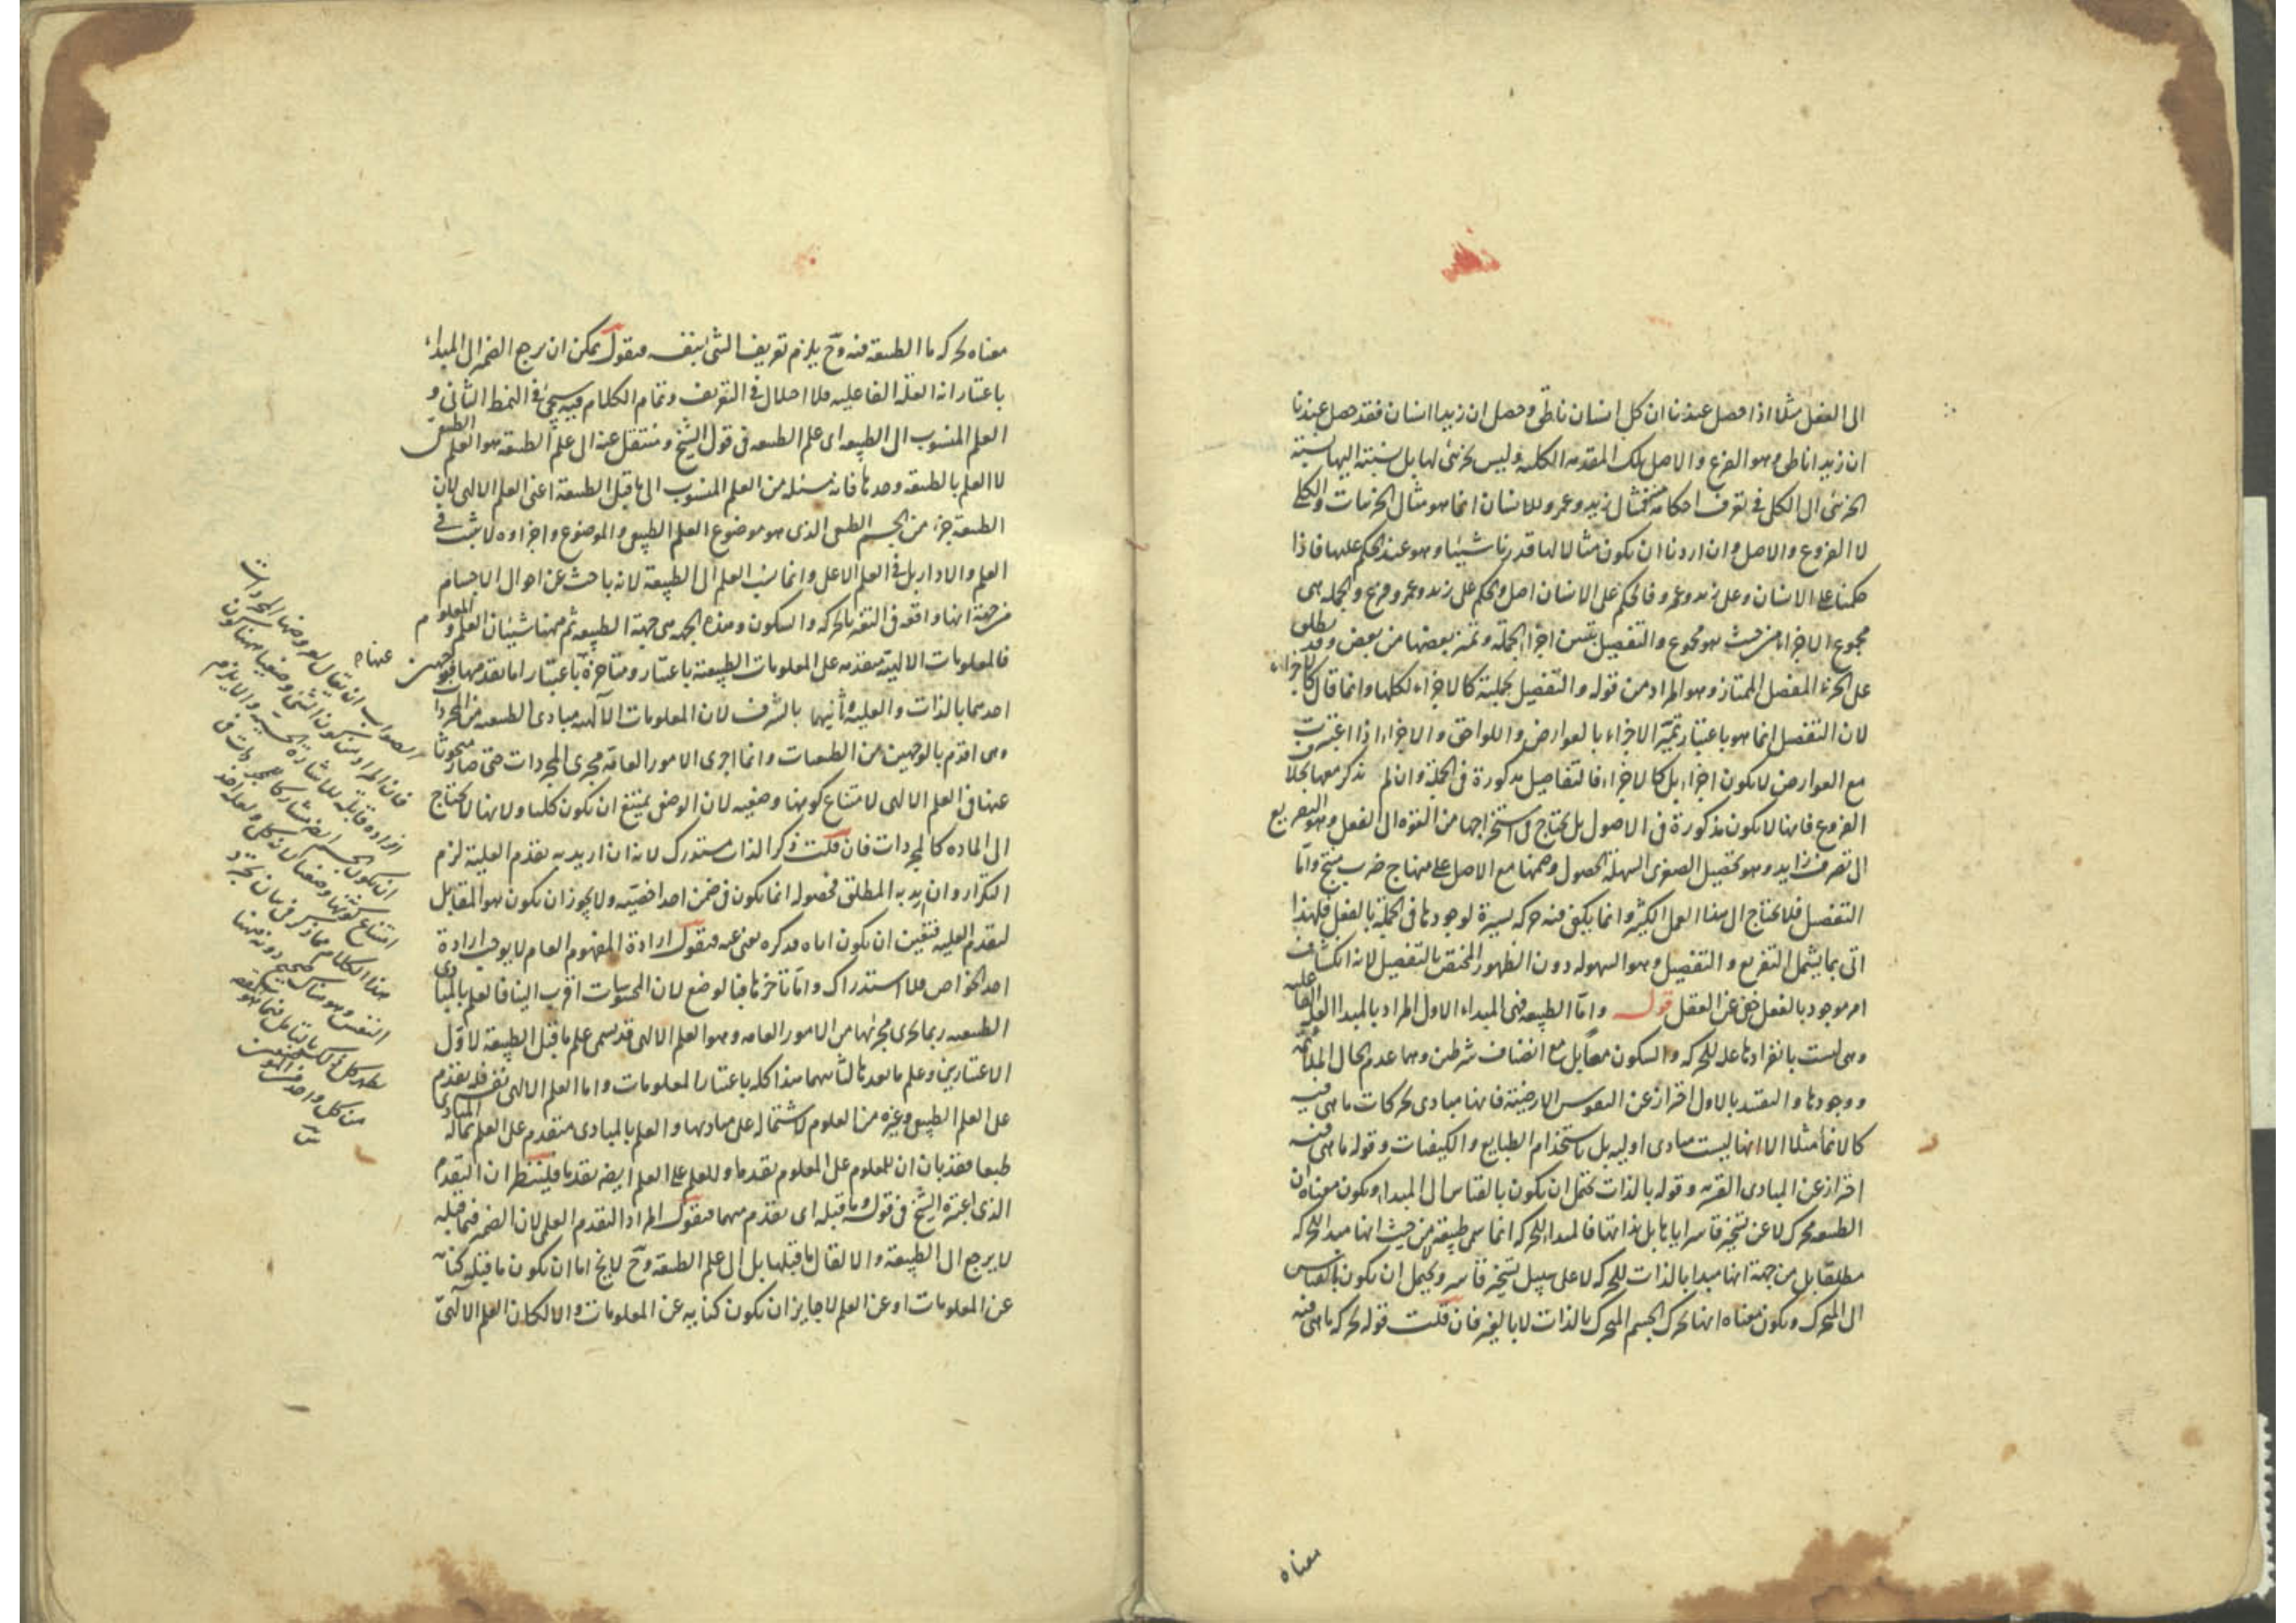 الى الفعل مثلا اذا حصل عندنا ان كل انسان ناطق وحصل ان زيدا انسان فقد حصل عندنا
ان زيدا ناطق وهو الفرع والاصل تلك المقدمة الكلية وليس بجزئى لها بل نسبته اليها نسبة
الجزئى الى الكلى فى تعرف احكامه فتمثال زيد وعمرو للانسان انما هو مثال الجزئيات والكلى
لا الفروع والاصل وان اردنا ان يكون مثالا لها قدرنا شيئا وهو عند الحكم عليها فاذا
حكمنا على الانسان وعلى زيد وعمرو فالحكم على الانسان اصل والحكم على زيد وعمرو فرع والجملة هى
مجموع الاجزاء من حيث هو مجموع والتفصيل تعيين اجزاء الجملة وتميز بعضها من بعض وقد يطلق
على الجزء المفصل الممتاز وهو المراد من قوله والتفصيل لجملته كالاجزاء لكلها وانما قال كالاجزاء
لان التفصيل انما هو باعتبار تميز الاجزاء بالعوارض واللواحق والاجزاء اذا اعتبرت
مع العوارض لا يكون اجزاء بل كالاجزاء فالتفاصيل مذكورة فى الجملة وان لم يذكر معها بخلاف
الفروع فانها لا يكون مذكورة فى الاصول بل يحتاج فى استخراجها من القوة الى الفعل وهو التفريع
الى تصرف زايد وهو تحصيل الصغرى السهلة الحصول وضمها مع الاصل على منهاج ضرب منتج واما
التفصيل فلا يحتاج الى هذا العمل الكثير وانما يكفى فيه حركة يسيرة لوجودها فى الجملة بالفعل فلهذا
اتى بما يشمل التفريع والتفصيل وهو السهولة دون الظهور المختص بالتفصيل لانه انكشاف
امر موجود بالفعل خفى عن العقل قوله واما الطبيعة فهى المبداء الاول المراد بالمبدا العلة الفاعلية
وهى ليست بانفرادها علة للحركة والسكون معا بل مع انضياف شرطين وهما عدم الحال الملائمة
ووجودها والتقييد بالاول احتراز عن النفوس الارضية فانها مبادى لحركات ما هى فيه
كالانماء مثلا الا انها ليست مبادى اولية بل باستخدام الطبايع والكيفيات وقوله ما هى فيه
احتراز عن المبادى القسرية وقوله بالذات يحتمل ان يكون بالقياس الى المبداء ويكون معناه ان
الطبيعة محرك لا عن تسخير قاسر اياها بل بذاتها فالمبداء للحركة انما سمى طبيعة لا من حيث انها مبدا للحركة
مطلقا بل من جهة انها مبدا بالذات للحركة لا على سبيل تسخير قاسر ويحتمل ان يكون بالقياس
الى المتحرك ويكون معناه انها تحرك الجسم المتحرك بالذات لا بالغير فان قلت قوله لحركة ما هى فيه
معناه
معناه لحركة ما الطبيعة فيه وح يلزم تعريف الشى بنفسه فنقول يمكن ان يرجع الضمير الى المبداء
باعتبار انه العلة الفاعلية فلا اخلال فى التعريف وتمام الكلام فيه سيجئ فى النمط الثانى و
العلم المنسوب الى الطبيعة اى علم الطبيعة فى قول الشيخ وننتقل عنه الى علم الطبيعة هو العلم الطبيعى
لا العلم بالطبيعة وحدها فانه مسئلة من العلم المنسوب الى ما قبل الطبيعة اعنى العلم الالهى لان
الطبيعة جزء من الجسم الطبيعى الذى هو موضوع العلم الطبيعى والموضوع واجزاوه لا يثبت فى
العلم والادار بل فى العلم الاعلى وانما نسب العلم الى الطبيعة لانه باحث عن احوال الاجسام
من جهة انها واقعة فى التغير بالحركة والسكون وهذه الجهة هى جهة الطبيعة ثم ههنا شيئان العلم والمعلوم
فالمعلومات الالهية متقدمة على المعلومات الطبيعية باعتبار ومتاخرة باعتبار اما تقدمها فبوجهين
احدهما بالذات والعلية وثانيهما بالشرف لان المعلومات الالهية مبادى الطبيعة من المجردات
وهى اقدم بالوجهين من الطبيعيات وانما اجرى الامور العامة مجرى المجردات حتى صار مبحوثا
عنها فى العلم الالهى لامتناع كونها وضعية لان الوضعى يمتنع ان يكون كليا ولانها لا يحتاج
الى المادة كالمجردات فان قلت ذكر الذات مستدرك لانه ان اريد به تقدم العلية لزم
التكرار وان اريد به المطلق فحصوله انما يكون فى ضمن احد اخصيه ولا يجوز ان يكون هو المقابل
لتقدم العلية فتعين ان يكون اياه فذكره يغنى عنه فنقول ارادة المفهوم العام لا يوجب ارادة
احد الخواص فلا استدراك واما تاخرها فبالوضع لان المحسوسات اقرب الينا فالعلم بالمبادى
الطبيعية ربما يجرى مجراها من الامور العامة وهو العلم الالهى قد يسمى علم ما قبل الطبيعة لاول
الاعتبارين وعلم ما بعدها لثانيهما هذا كله باعتبار المعلومات واما العلم الالهى نفسه فله تقدم
على العلم الطبيعى وغيره من العلوم لاشتماله على مباديها والعلم بالمبادى متقدم على العلم بما له المبادى
طبعا فقد بان ان للمعلوم على المعلوم تقدما وللعلم على العلم ايضا تقدما فلينظر ان التقدم
الذى اعتبره الشيخ فى قوله وما قبله اى تقدم منهما فنقول المراد التقدم العلمى لان الضمير فيما قبله
لا يرجع الى الطبيعة والا لقال ما قبلها بل الى علم الطبيعة وح لا يخ اما ان يكون ما قبله كناية
عن المعلومات او عن العلم لا جايز ان يكون كناية عن المعلومات والا لكان العلم الالهى